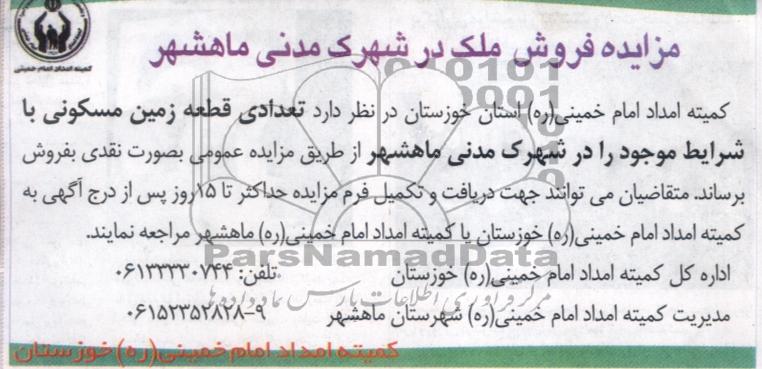 کمیته امداد امام خمینی
مزایده فروش ملک در شهرک مدنی ماهشهر
کمیته امداد امام خمینی(ره) استان خوزستان در نظر دارد تعدادی قطعه زمین مسکونی با
شرایط موجود را در شهرک مدنی ماهشهر از طریق مزایده عمومی بصورت نقدی بفروش
برساند. متقاضیان می توانند جهت دریافت و تکمیل فرم مزایده حداکثر تا ۱۵روز پس از درج آگهی به
کمیته امداد امام خمینی(ره) خوزستان یا کمیته امداد امام خمینی(ره) ماهشهر مراجعه نمایند.
ParsNamadData
اداره کل کمیته امداد امام خمینی(ره) خوزستان تلفن: ۰۶۱۳۳۳۳۰۷۴۴
مرکز فرآوری اطلاعات پارس نماد داده ها
مدیریت کمیته امداد امام خمینی(ره) شهرستان ماهشهر ۰۶۱۵۲۳۵۲۸۲۸-۹
کمیته امداد امام خمینی(ره) خوزستان